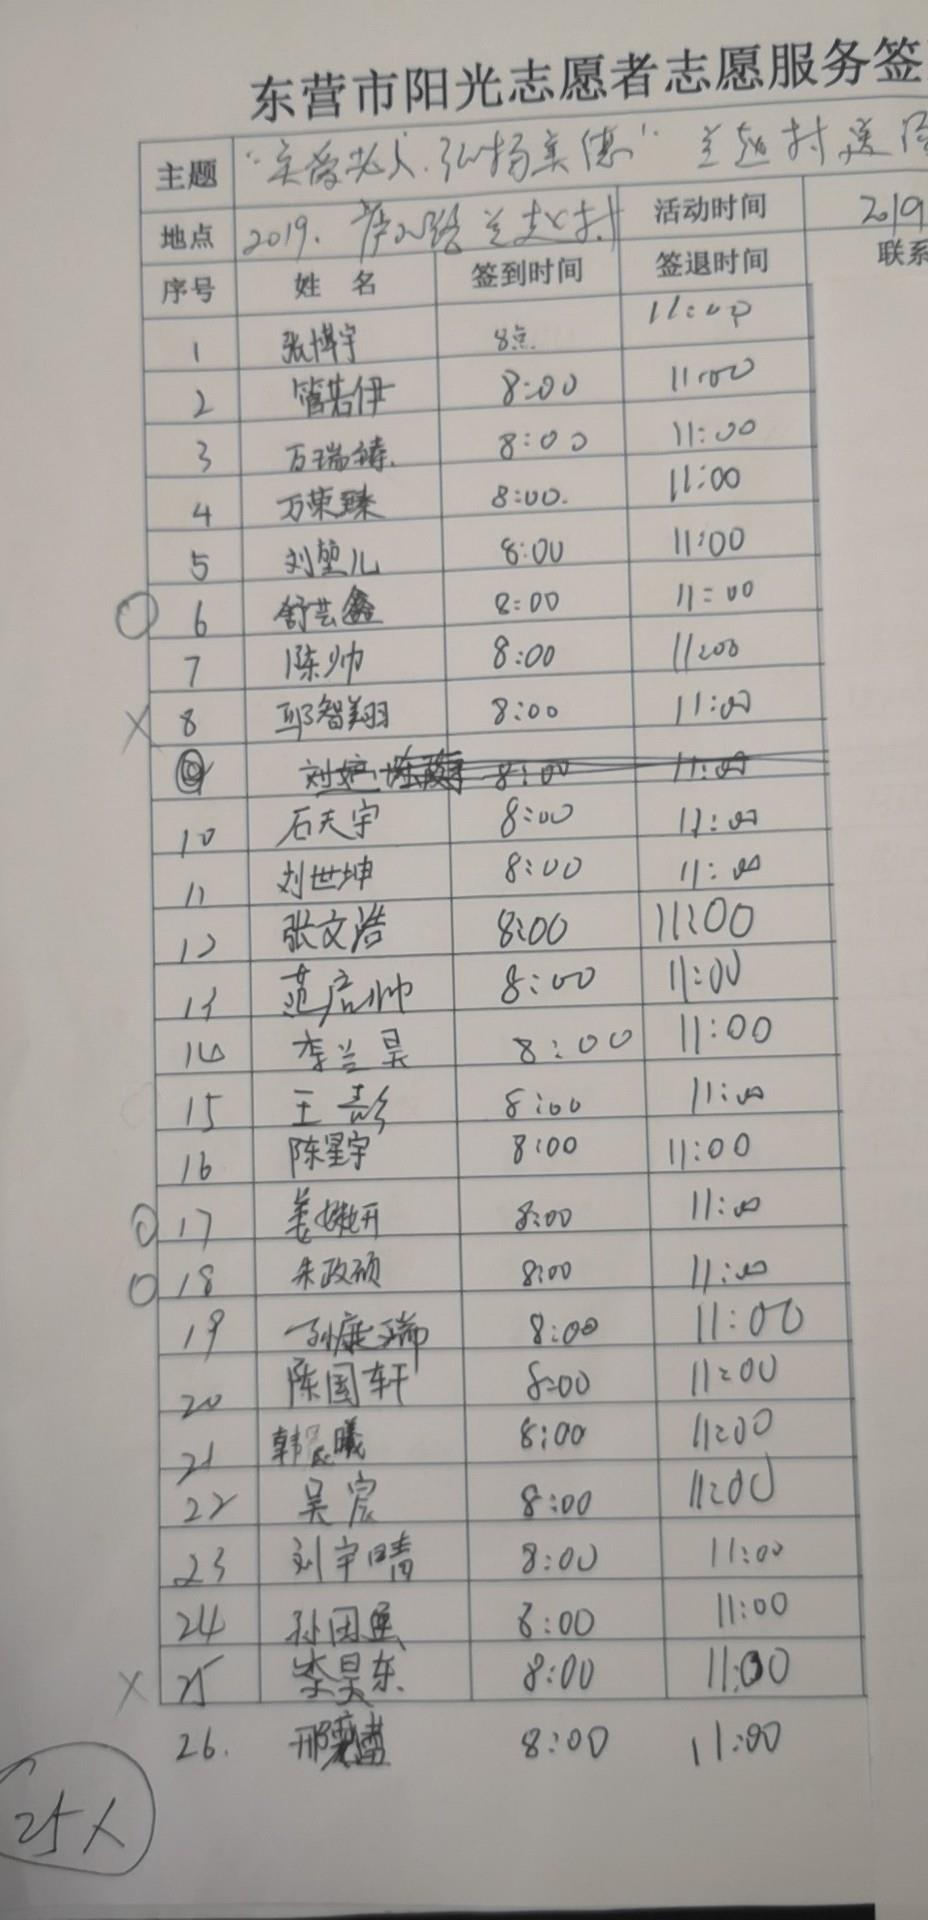 东营市阳光志愿者志愿服务签
主题 "关爱老人.弘扬美德" 兰赵村送
地点 2019. 兰赵村 活动时间 2019
序号 姓名 签到时间 签退时间 联系
1 张博宇 8点. 11:00
2 管若伊 8:00 11:00
3 万瑞 8:00 11:00
4 万荣臻 8:00. 11:00
5 刘堃儿 8:00 11:00
6 舒芸鑫 8:00 11:00
7 陈帅 8:00 11:00
X 8 智翔 8:00 11:00
9 刘 8:00 11:00
10 石天宇 8:00 11:00
11 刘世坤 8:00 11:00
12 张文浩 8:00 11:00
13 范启帅 8:00 11:00
14 李兰昊 8:00 11:00
15 王彭 8:00 11:00
16 陈星宇 8:00 11:00
17 姜妍 8:00 11:00
18 朱政硕 8:00 11:00
19 孙瑞 8:00 11:00
20 陈国轩 8:00 11:00
21 韩曦 8:00 11:00
22 吴宸 8:00 11:00
23 刘宇晴 8:00 11:00
24 孙 8:00 11:00
X 25 李昊东 8:00 11:00
26. 邢 8:00 11:00
25人